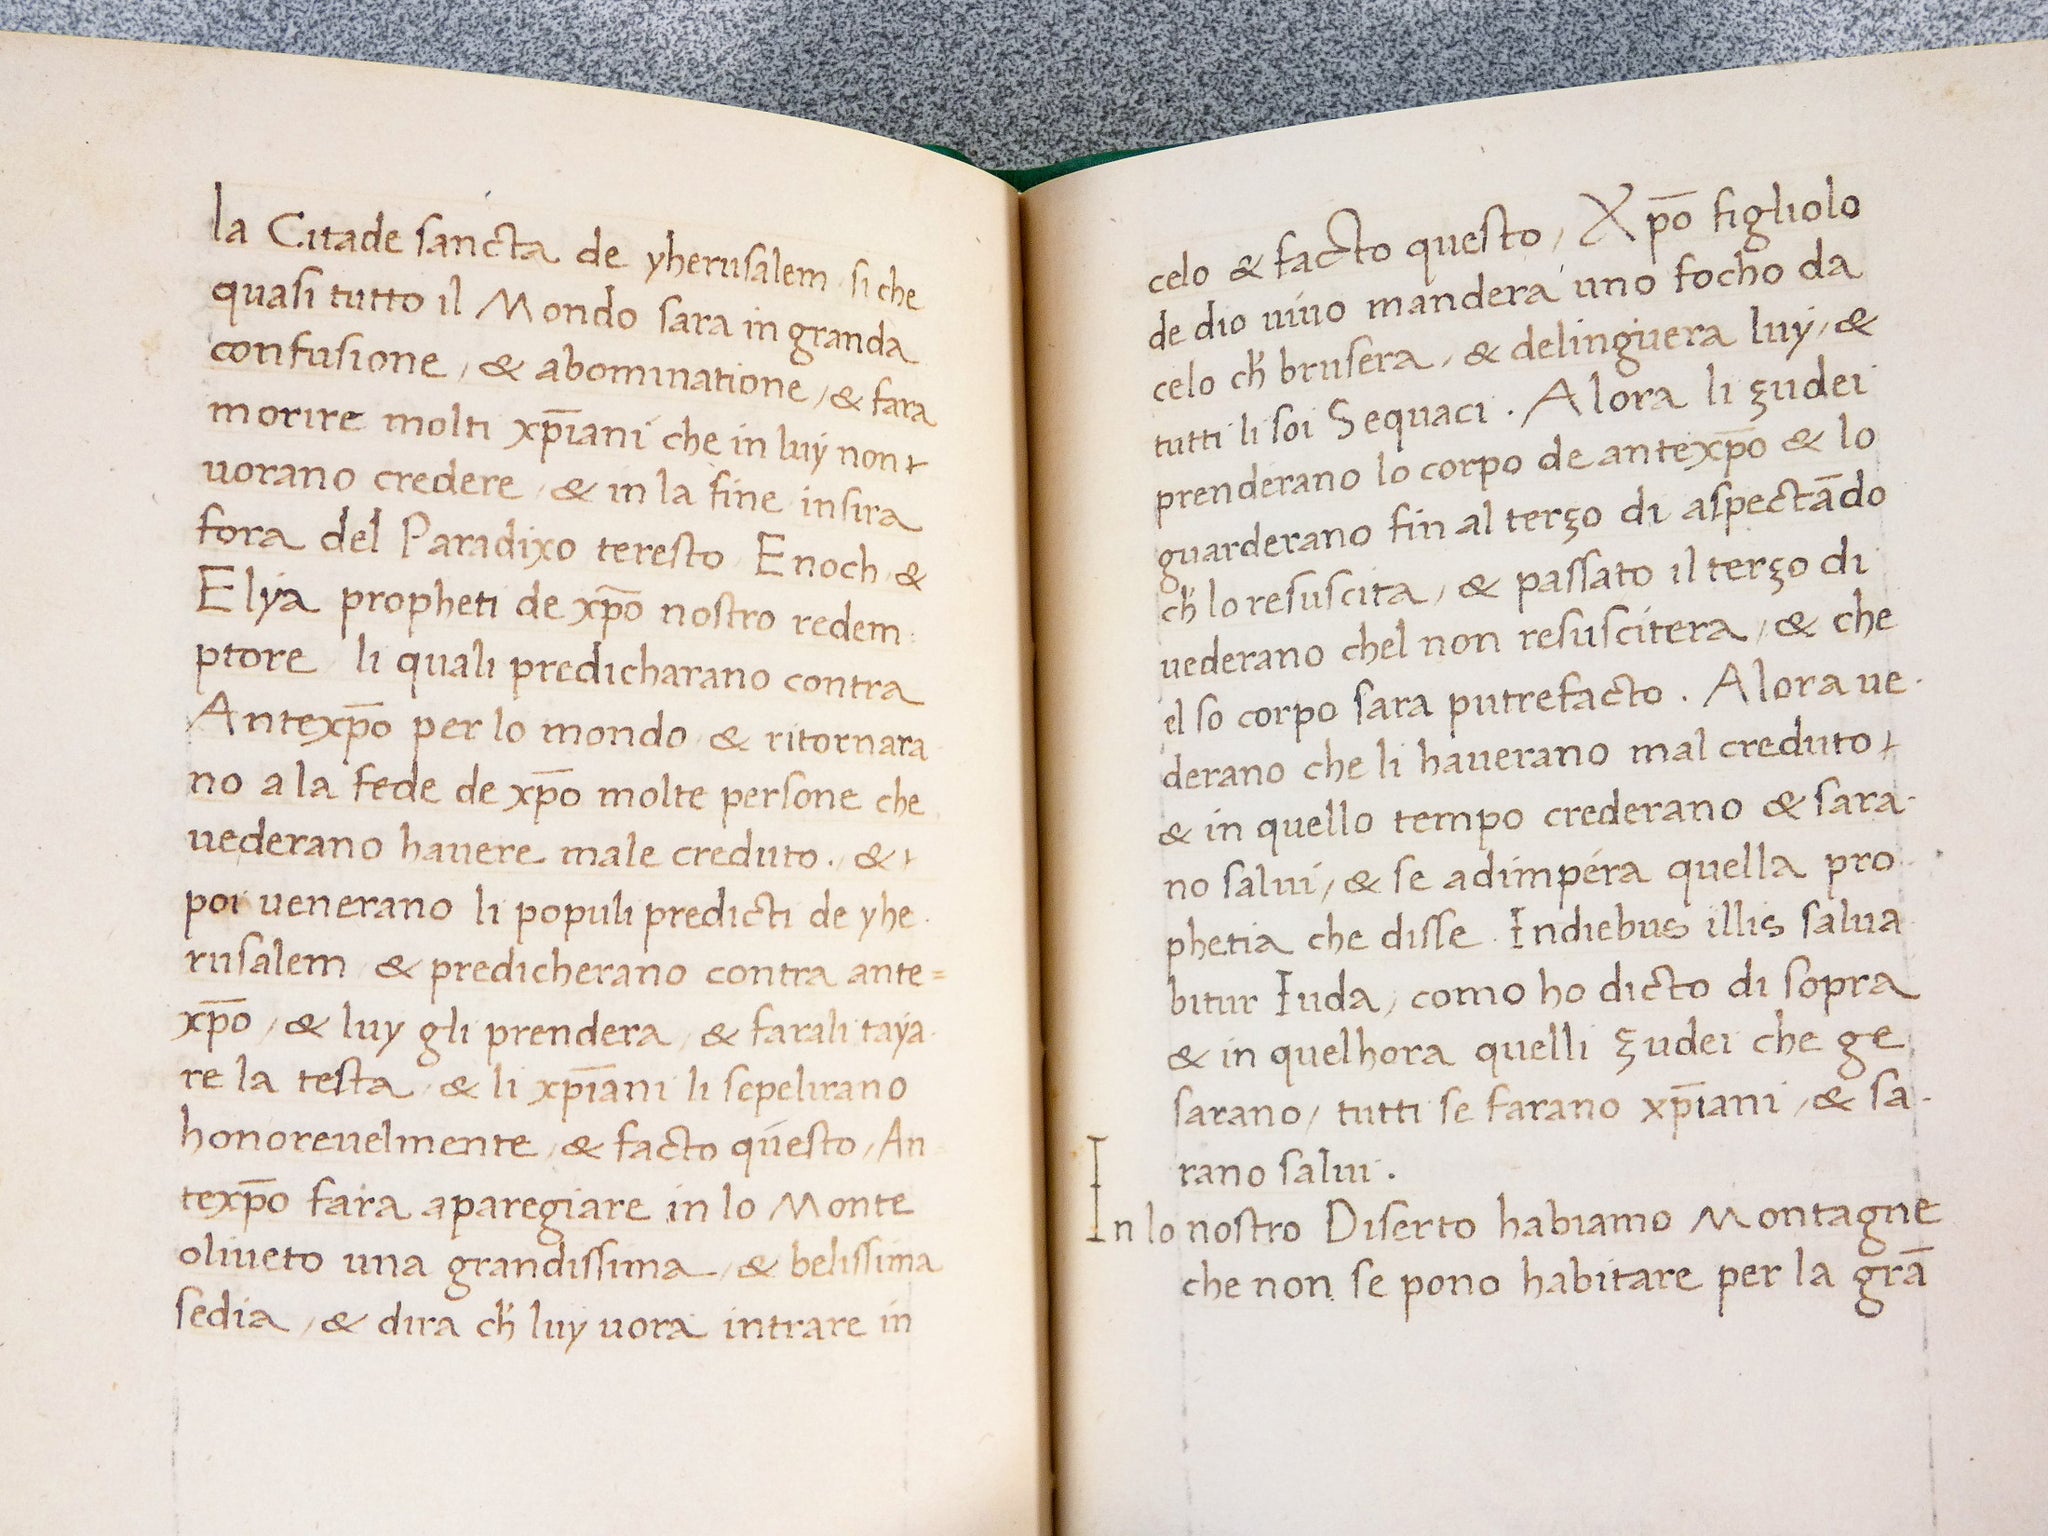 la Citade sancta de yherusalem si che
quasi tutto il Mondo sara in granda
confusione / & abominatione / & fara
morire molti xp̄iani che in luy non
uorano credere / & in la fine insira
fora del Paradixo teresto Enoch &
Elya propheti de xp̄o nostro redem
ptore li quali predicharano contra
Antexp̄o per lo mondo & ritornara
no a la fede de xp̄o molte persone che
uederano hauere male creduto . / &
poi uenerano li populi predicti de yhe
rusalem & predicherano contra ante=
xp̄o / & luy gli prendera / & farali taya
re la testa & li xp̄iani li sepelirano
honoreuelmente / & facto questo / An
texp̄o fara aparegiare in lo Monte
oliueto una grandissima / & belissima
sedia / & dira ch' luy uora intrare in
celo & facto questo / Xp̄o figliolo
de dio uiuo mandera uno focho da
celo ch' brusera / & delinguera luy / &
tutti li soi Sequaci . Alora li zudei
prenderano lo corpo de antexp̄o & lo
guarderano fin al terzo di aspectādo
ch' lo resuscita / & passato il terzo di
uederano chel non resuscitera / & che
el so corpo sara putrefacto . Alora ue
derano che li hauerano mal creduto
& in quello tempo crederano & sara
no salui / & se adimpera quella pro
phetia che disse . Indiebus illis salua
bitur Iuda / como ho dicto di sopra
& in quelhora quelli zudei che ge
sarano / tutti se farano xp̄iani / & sa
rano salui .
In lo nostro Diserto habiamo Montagne
che non se pono habitare per la grā